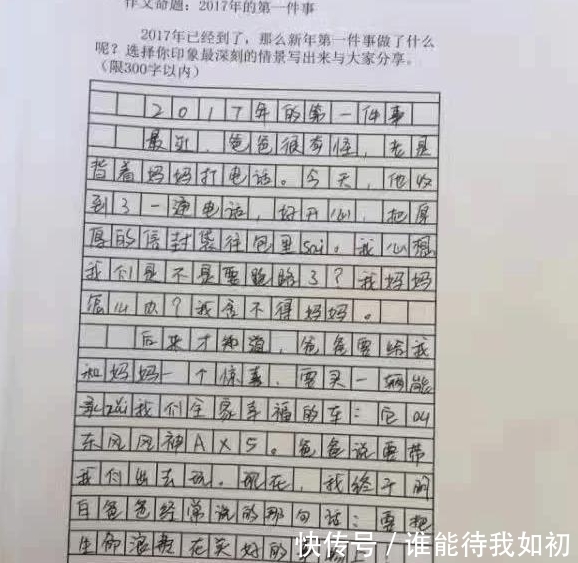 作文命题：2017年的第一件事
2017年已经到了，那么新年第一件事做了什么
呢？选择你印象最深刻的情景写出来与大家分享。
（限300字以内）
2017年的第一件事
最近，爸爸很奇怪，老是
背着妈妈打电话。今天，他收
到了一通电话，好开心，把厚
厚的信封袋往包里sai。我心想
我们是不是要跑路了？我妈妈
怎么办？我舍不得妈妈。
后来才知道，爸爸要给我
和妈妈一个惊喜，要买一辆能
承zai我们全家幸福的车：它叫
东风风神AX5。爸爸说要带
我们出去玩。现在，我终于明
白爸爸经常说的那句话：要把
生命浪 在美好的
快传号／谁能待我如初